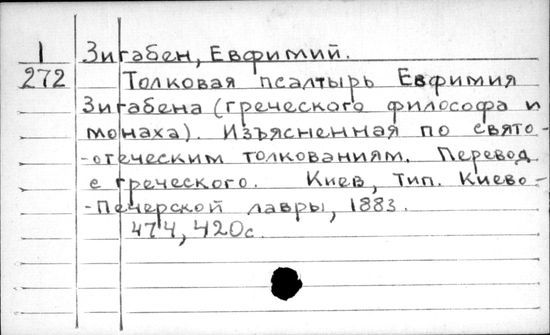 1
272
Зигабен, Евфимий.
Толковая псалтырь Евфимия
Зигабена (греческого философа и
монаха). Изъясненная по свято-
-отеческим толкованиям. Перевод
с греческого. Киев, тип. Киево-
-Печерской лавры, 1883.
474, 420с.